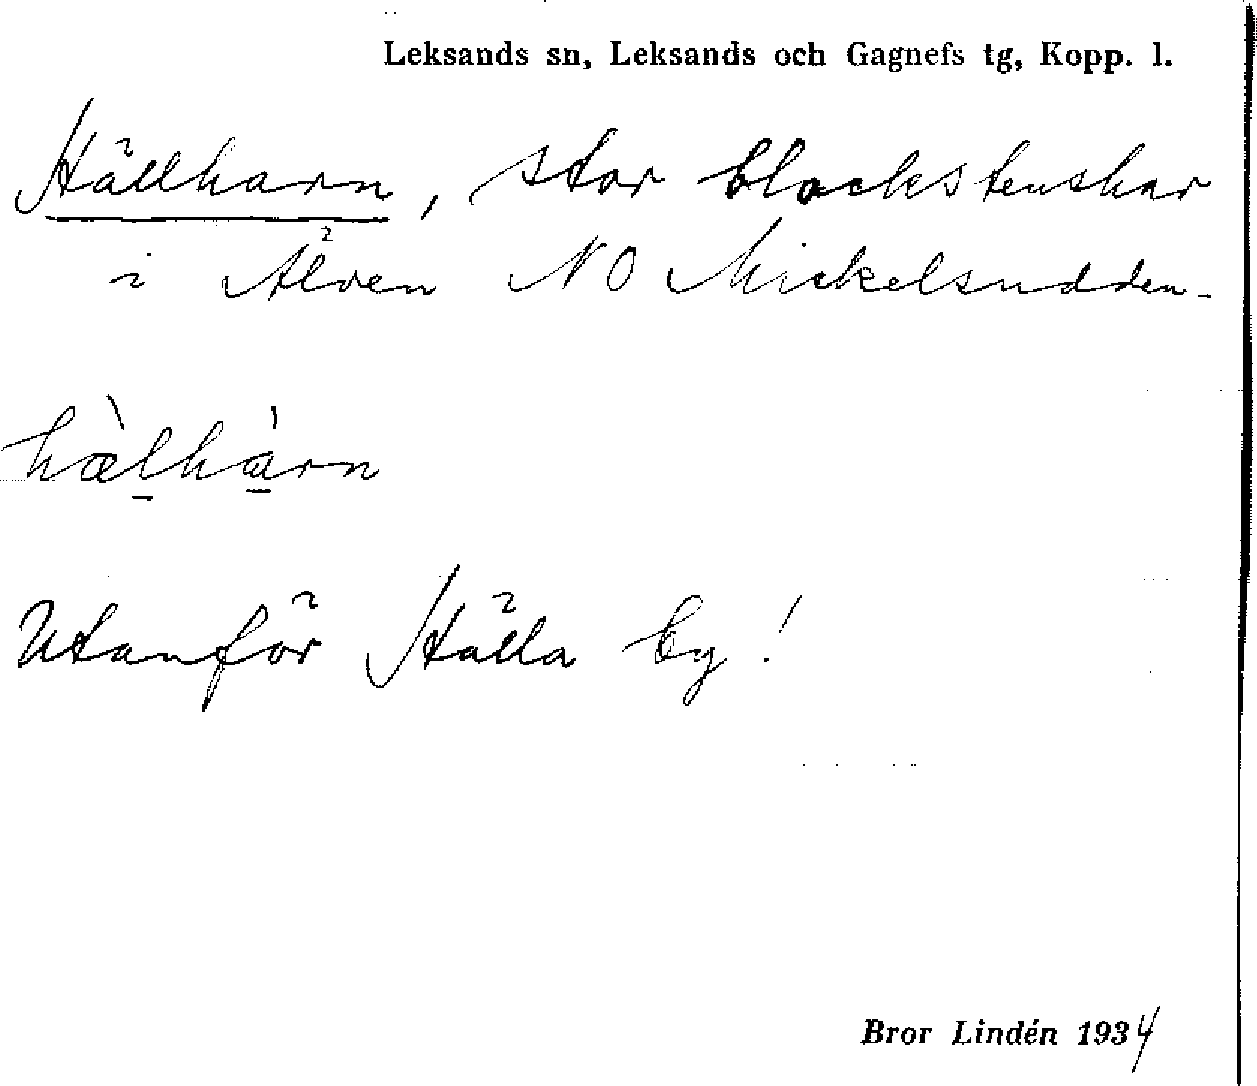 Leksands sn, Leksands och Gagnefs tg, Kopp. l.
Hällharn, stor blockstenskar
i Älven NO Mickelsudden-
hæ̀lhàrn
Utanför Hälla by!
Bror Lindén 1934